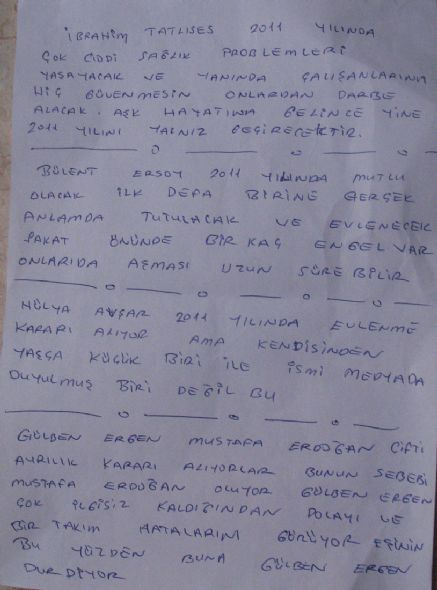 İBRAHİM TATLISES 2011 YILINDA
ÇOK CİDDİ SAĞLIK PROBLEMLERİ
YAŞAYACAK VE YANINDA ÇALIŞANLARINA
HİÇ GÜVENMESİN ONLARDAN DARBE
ALACAK. AŞK HAYATINA GELİNCE YİNE
2011 YILINI YALNIZ GEÇİRECEKTİR.
BÜLENT ERSOY 2011 YILINDA MUTLU
OLACAK İLK DEFA BİRİNE GERÇEK
ANLAMDA TUTULACAK VE EVLENECEK
FAKAT ÖNÜNDE BİR KAÇ ENGEL VAR
ONLARIDA AŞMASI UZUN SÜRE BİLİR
HÜLYA AVŞAR 2011 YILINDA EVLENME
KARARI ALIYOR AMA KENDİSİNDEN
YAŞÇA KÜÇÜK BİRİ İLE İSMİ MEDYADA
DUYULMUŞ BİRİ DEĞİL BU
GÜLBEN ERGEN MUSTAFA ERDOĞAN ÇİFTİ
AYRILIK KARARI ALIYORLAR BUNUN SEBEBİ
MUSTAFA ERDOĞAN OLUYOR GÜLBEN ERGEN
ÇOK İLGİSİZ KALDIĞINDAN DOLAYI VE
BİR TAKIM HATALARINI GÖRÜYOR EŞİNİN
BU YÜZDEN BUNA GÜLBEN ERGEN
DUR DİYOR